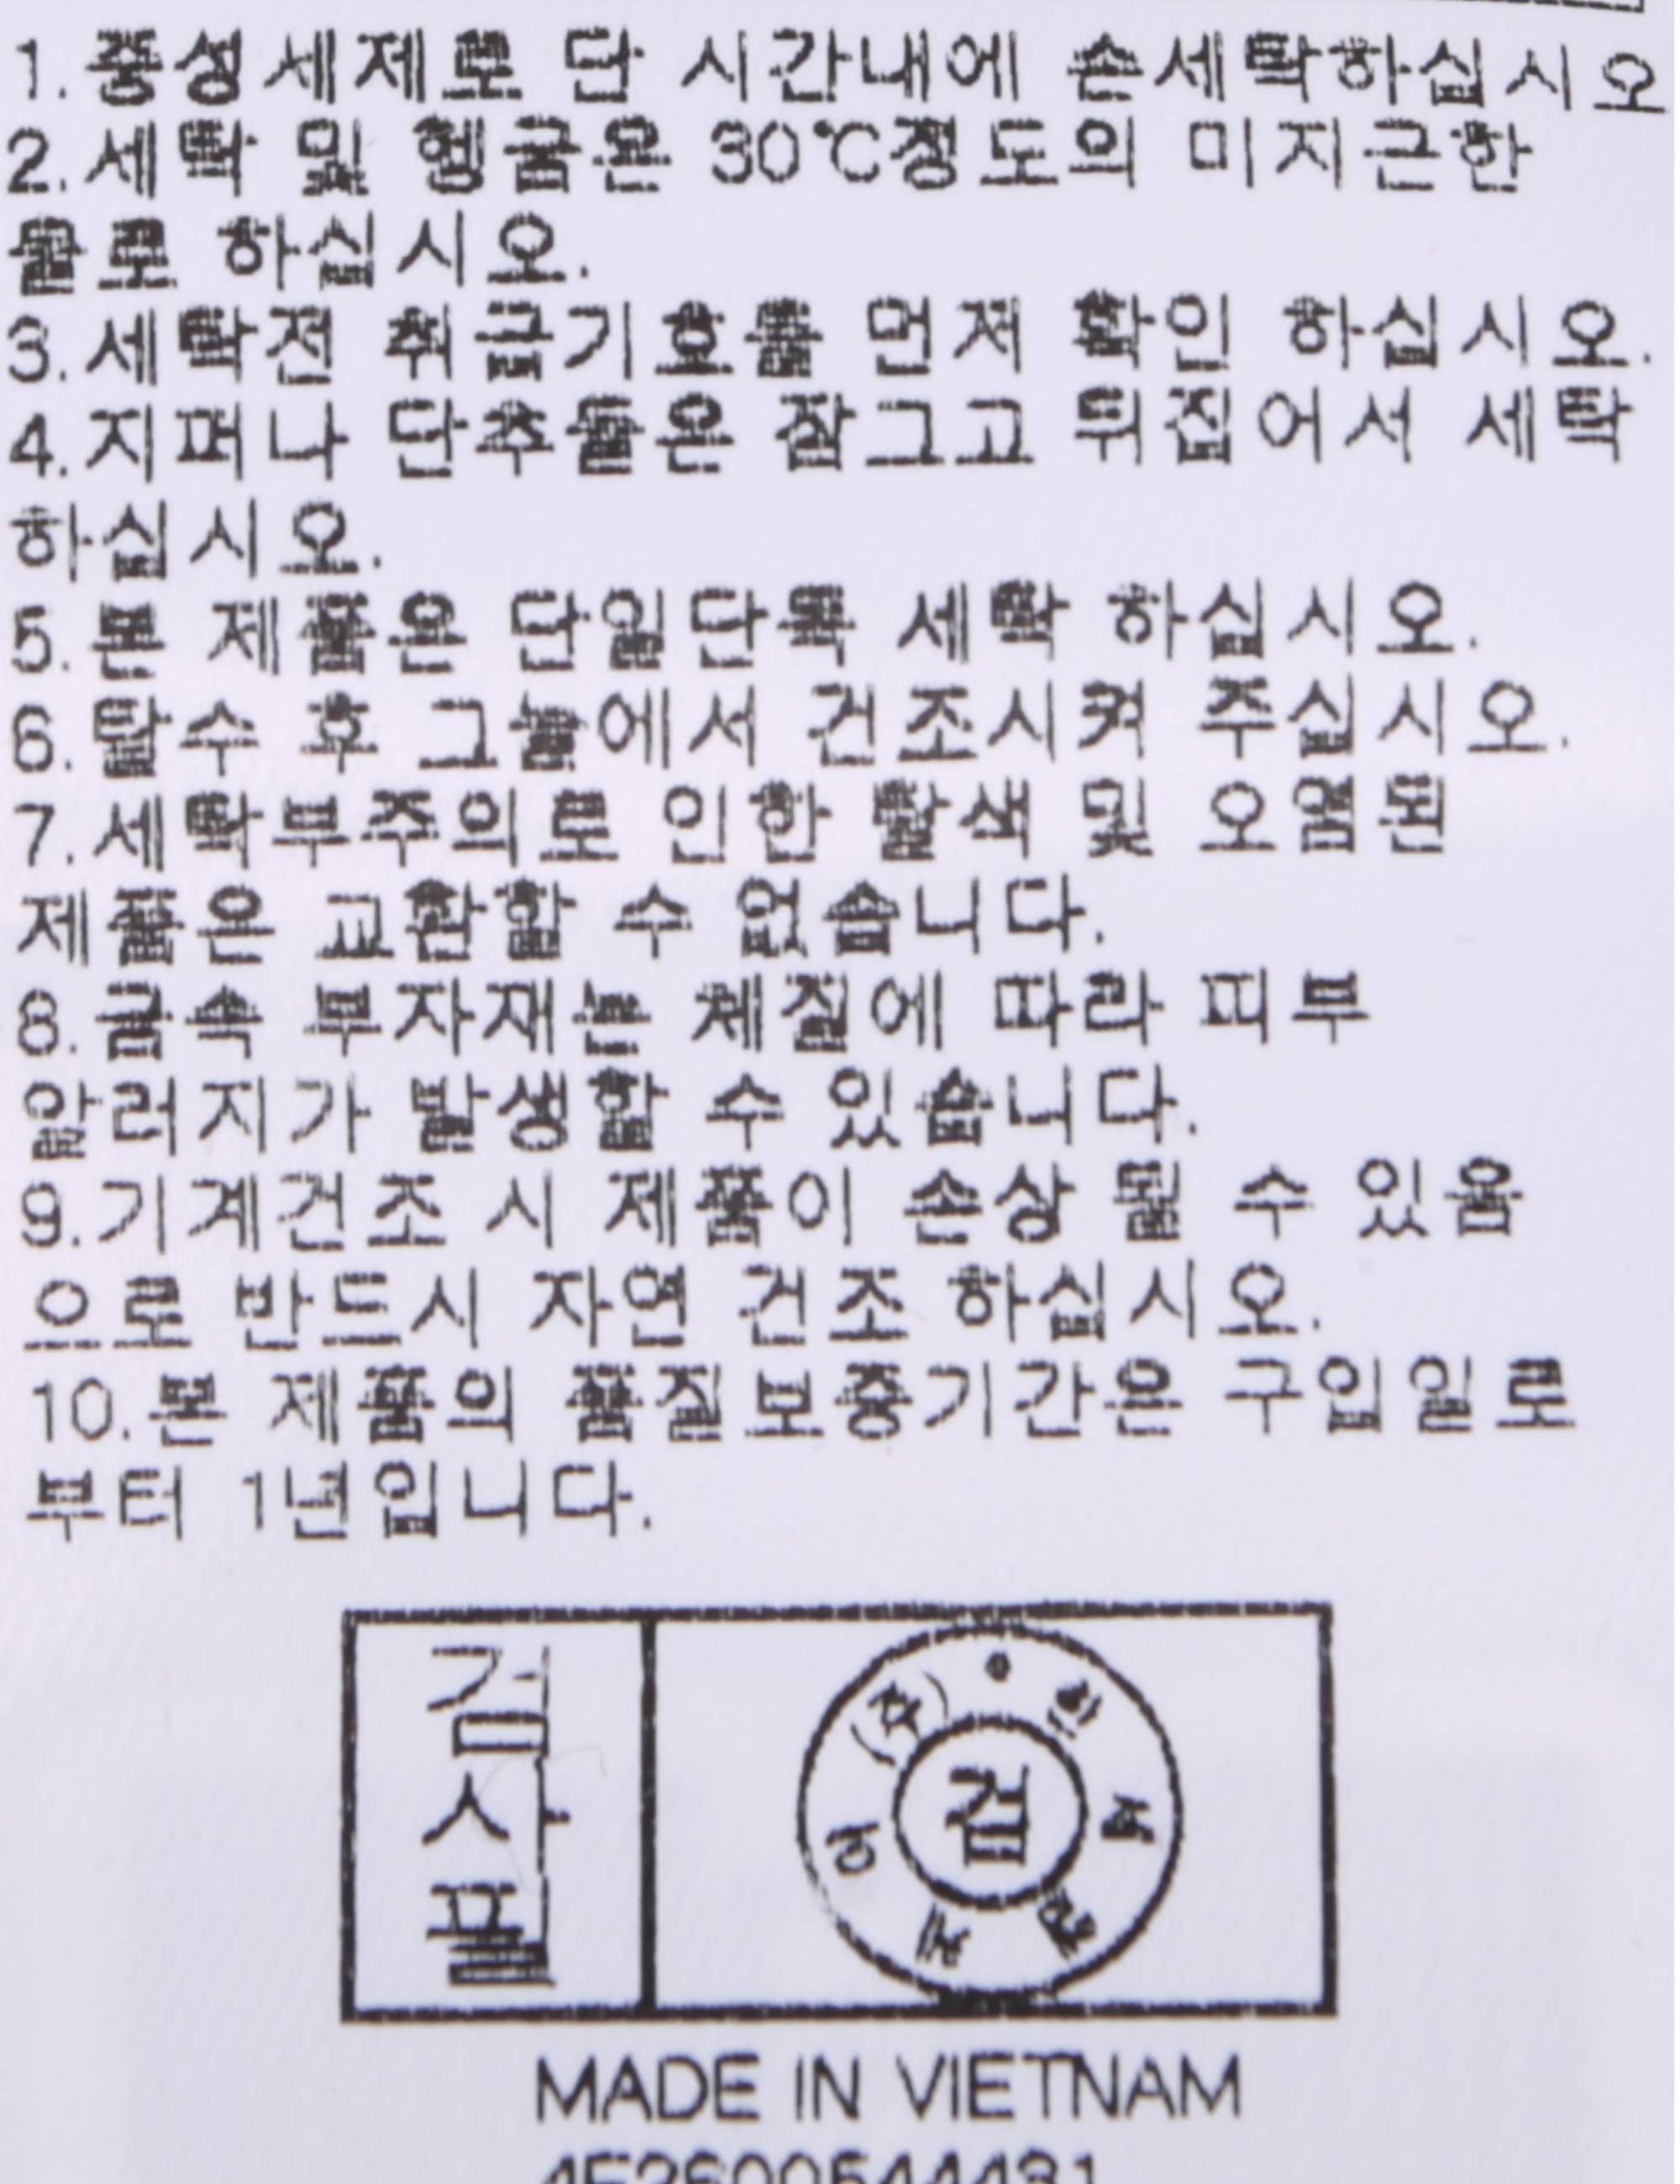 1. 중성세제로 단 시간내에 손세탁하십시오
2. 세탁 및 헹굼은 30℃정도의 미지근한
물로 하십시오.
3. 세탁전 취급기호를 먼저 확인 하십시오.
4. 지퍼나 단추들은 잠그고 뒤집어서 세탁
하십시오.
5. 본 제품은 단일단독 세탁 하십시오.
6. 탈수 후 그늘에서 건조시켜 주십시오.
7. 세탁부주의로 인한 탈색 및 오염된
제품은 교환할 수 없습니다.
8. 금속 부자재는 체질에 따라 피부
알러지가 발생할 수 있습니다.
9. 기계건조 시 제품이 손상 될 수 있음
으로 반드시 자연 건조 하십시오.
10. 본 제품의 품질보증기간은 구입일로
부터 1년입니다.
검사필
(주)
검
MADE IN VIETNAM